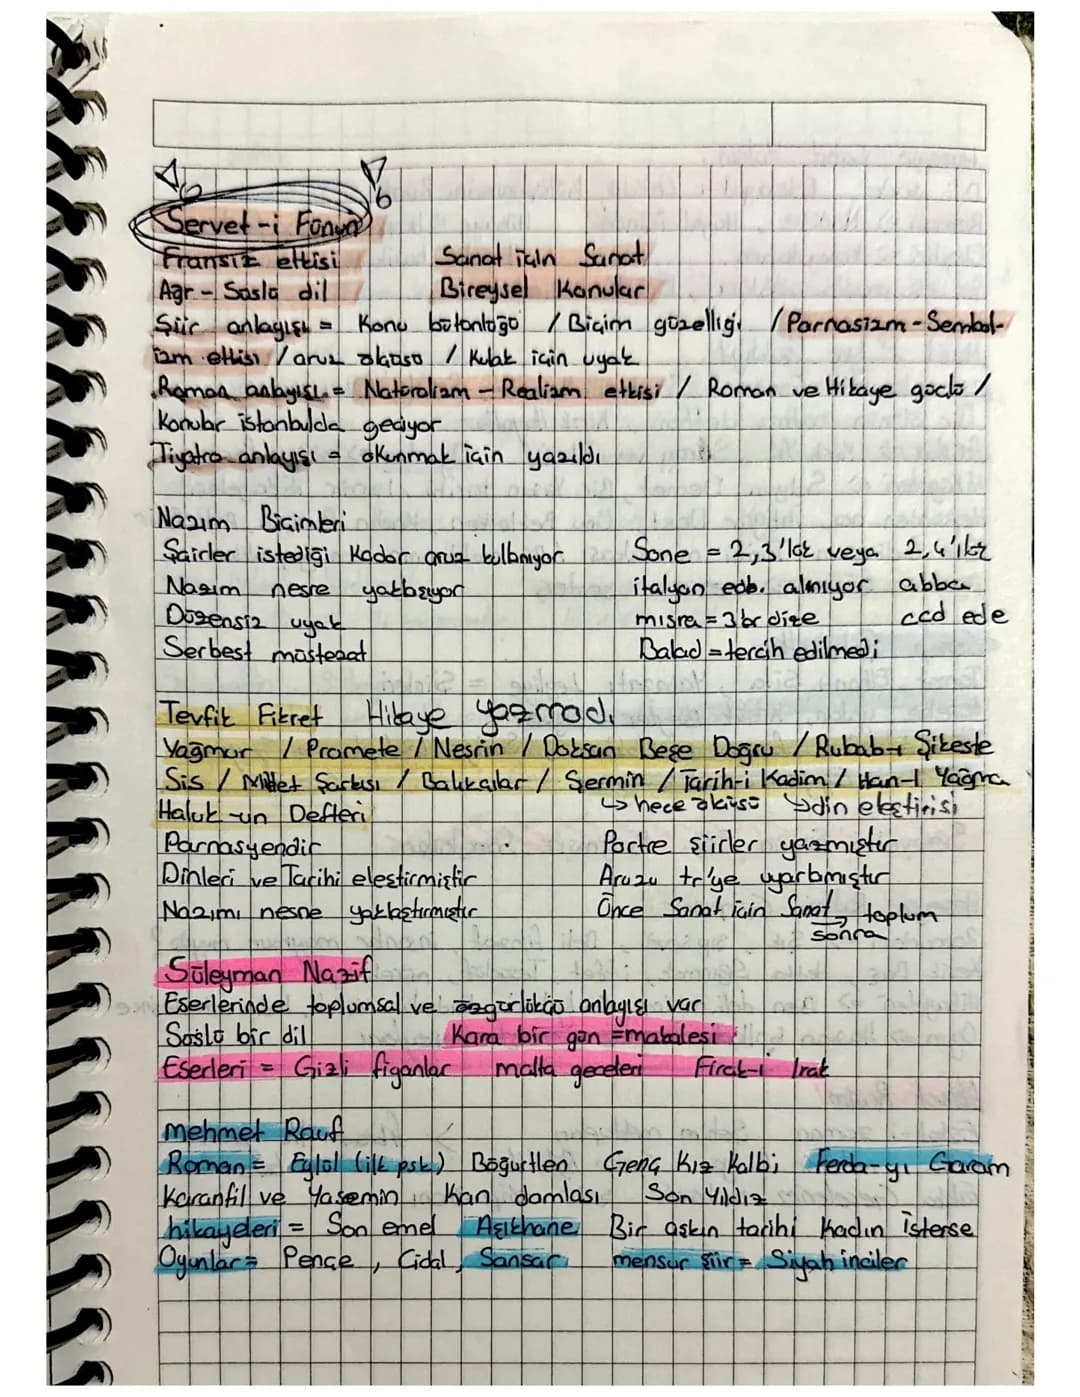 Servet-i Fünun
Fransız etkisi Sanat için Sanat
Ağır - Süslü dil Bireysel Konular
Şiir anlayışı = Konu bütünlüğü / Biçim güzelliği / Parnasizm - Sembol-
izm etkisi / aruz ölçüsü / Kulak için uyak
Roman anlayışı = Natüralizm - Realizm etkisi / Roman ve Hikaye güçlü /
Konular istanbulda geçiyor
Tiyatro anlayışı = okunmak için yazıldı
Nazım Biçimleri
Şairler istediği kadar aruz kullanıyor. Sone = 2,3'lük veya 2,4'lük
Nazım nesre yaklaşıyor italyan edb. alınıyor abba
Düzensiz uyak mısra = 3 br dize ccd ede
Serbest müstezat Balad = tercih edilmedi
Tevfik Fikret Hikaye yazmadı
Yağmur / Promete / Nesrin / Doksan Beşe Doğru / Rubab-ı Şikeste
Sis / Millet Şarkısı / Balıkçılar / Şermin / Tarih-i Kadim / Han-ı Yağma
↳ hece ölçüsü ↳ din eleştirisi
Haluk-un Defteri
Parnasyendir Portre şiirler yazmıştır
Dinleri ve Tarihi eleştirmiştir Aruzu tr'ye uyarlamıştır
Nazımı nesre yaklaştırmıştır Önce Sanat için Sanat → toplum
sonra
Süleyman Nazif
Eserlerinde toplumsal ve özgürlükçü anlayışı var
Süslü bir dil Kara bir gün = makalesi
Eserleri = Gizli figanlar malta geceleri Firak-i Irak
mehmet Rauf
Roman = Eylül (ilk psk) Böğürtlen Genç Kız Kalbi Ferda-yı Garam
Karanfil ve Yasemin Kan damlası Son Yıldız
hikayeleri = Son emel Aşıkhane Bir aşkın tarihi Kadın İsterse
Oyunlar = Pençe , Cidal , Sansar mensur şiir = Siyah inciler